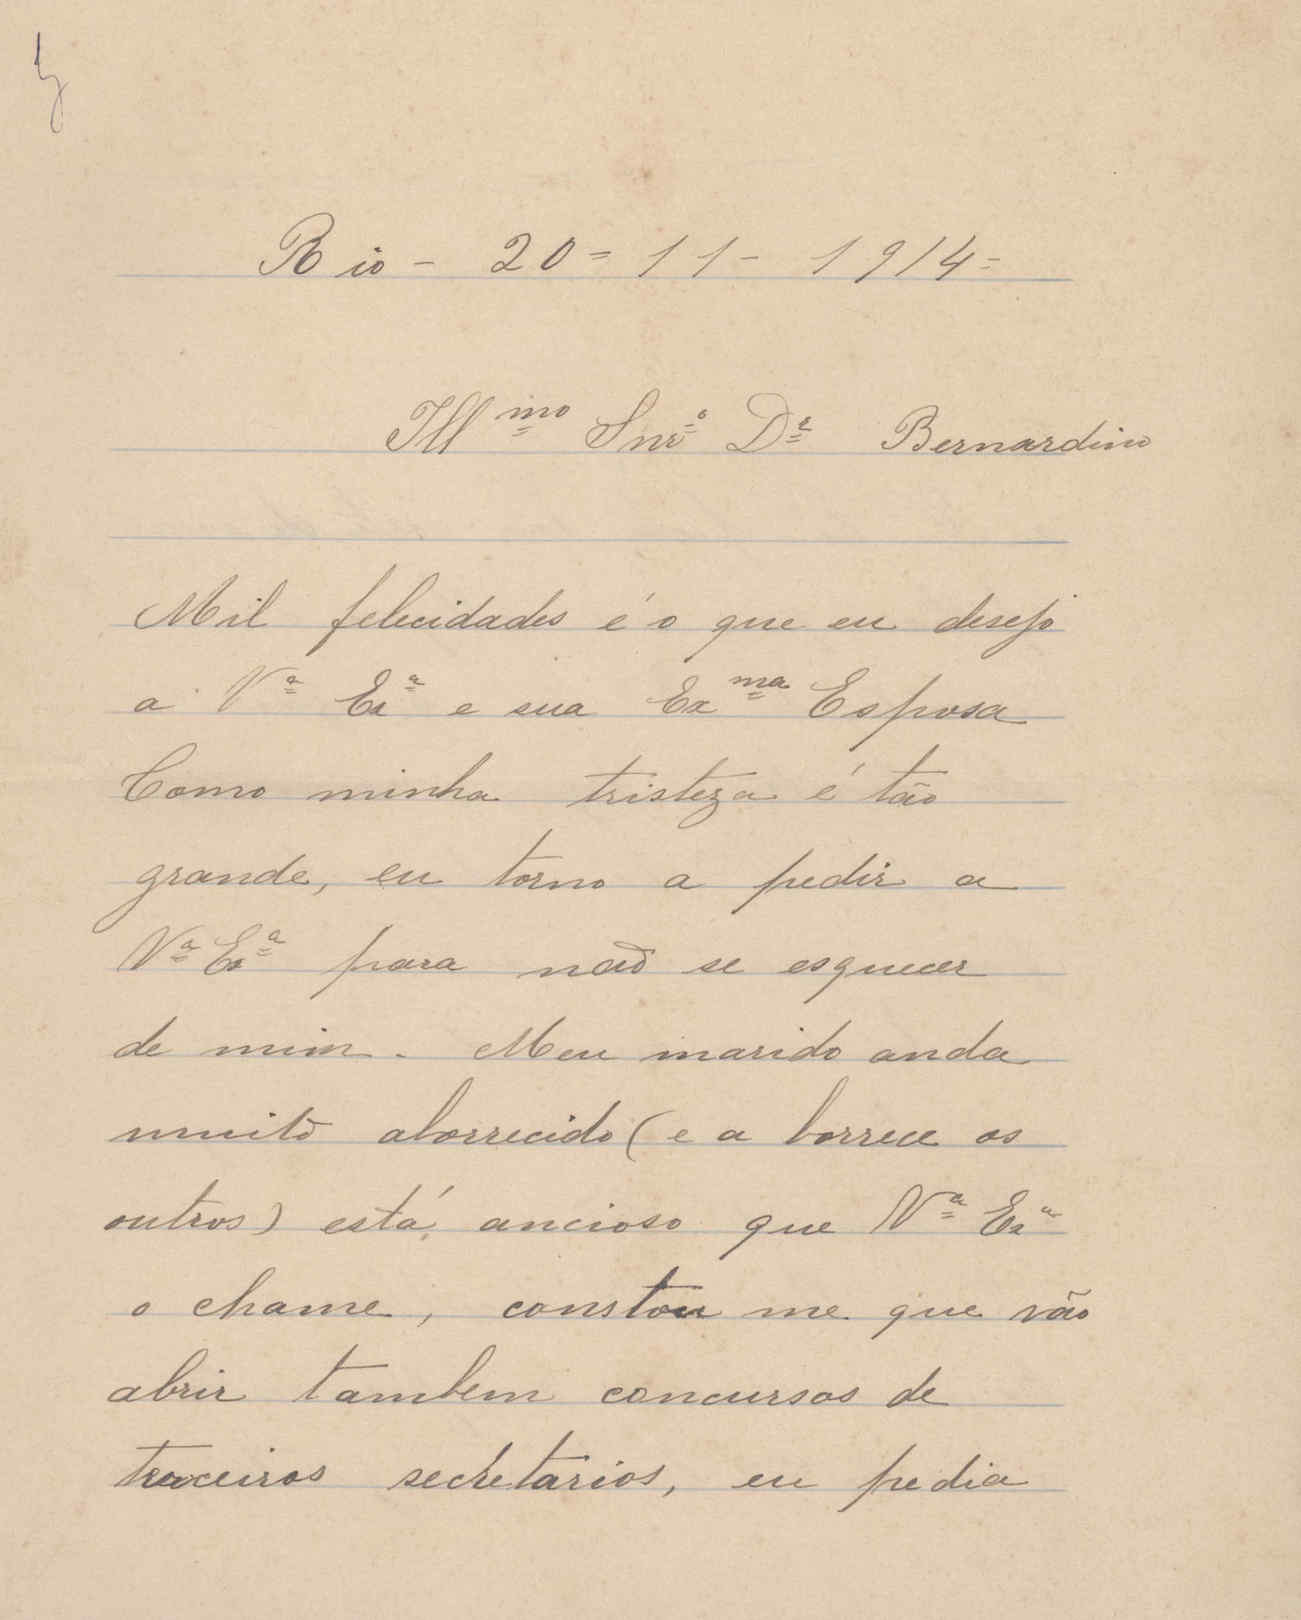 Rio - 20 = 11 - 1914 =
Ill mo Snr o Dr Bernardino
Mil felecidades é o que eu desejo
a Va Exa e sua Ex ma Esposa
Como minha tristeza é tão
grande, eu torno a pedir a
Va Exa para não se esquecer
de mim. Meu marido anda
muito aborrecido (e a borrece os
outros) está, ancioso que Va Exa
o chame, constou me que vão
abrir tambem concursos de
secretarios, eu pedia